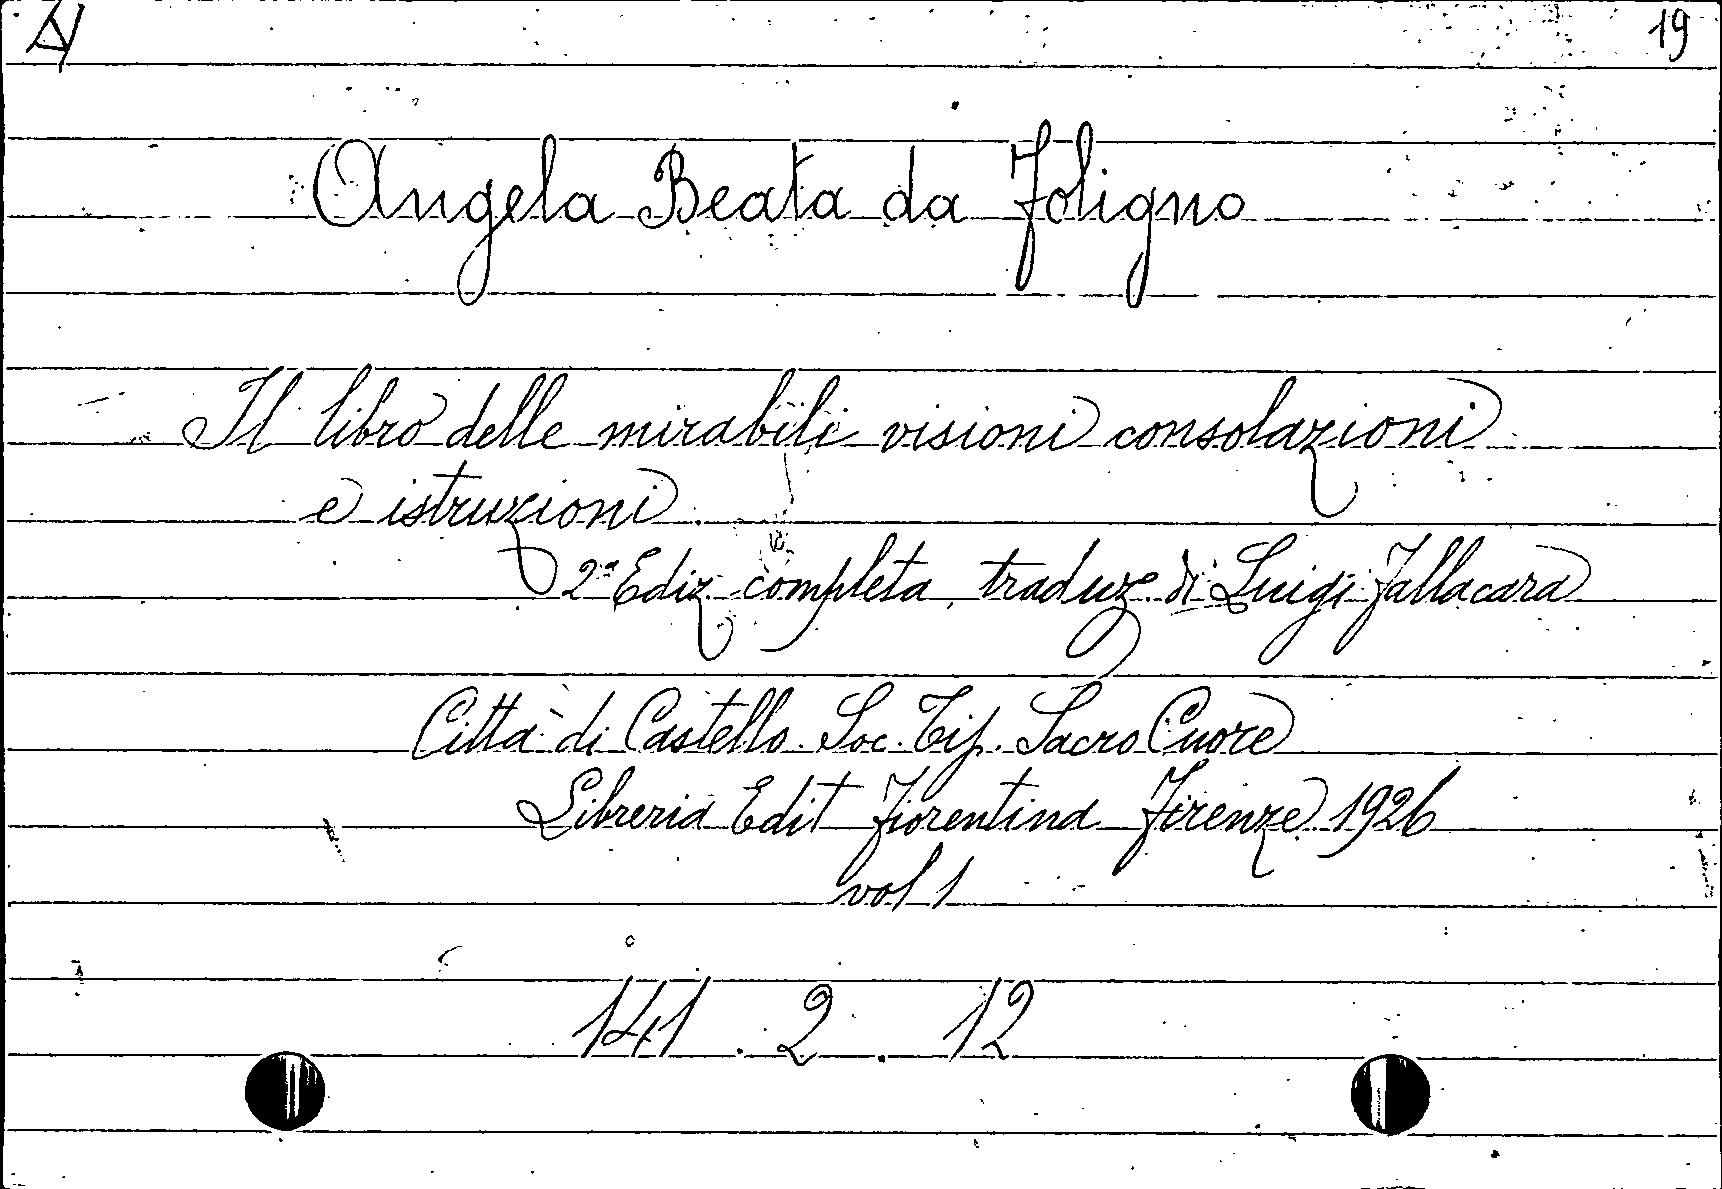 19
Angela Beata da Foligno
Il libro delle mirabili visioni consolazioni
e istruzioni
2ª Ediz. completa, traduz. di Luigi Fallacara
Città di Castello. Soc. Tip. Sacro Cuore
Libreria Edit Fiorentina Firenze 1926
vol 1
141.2.12